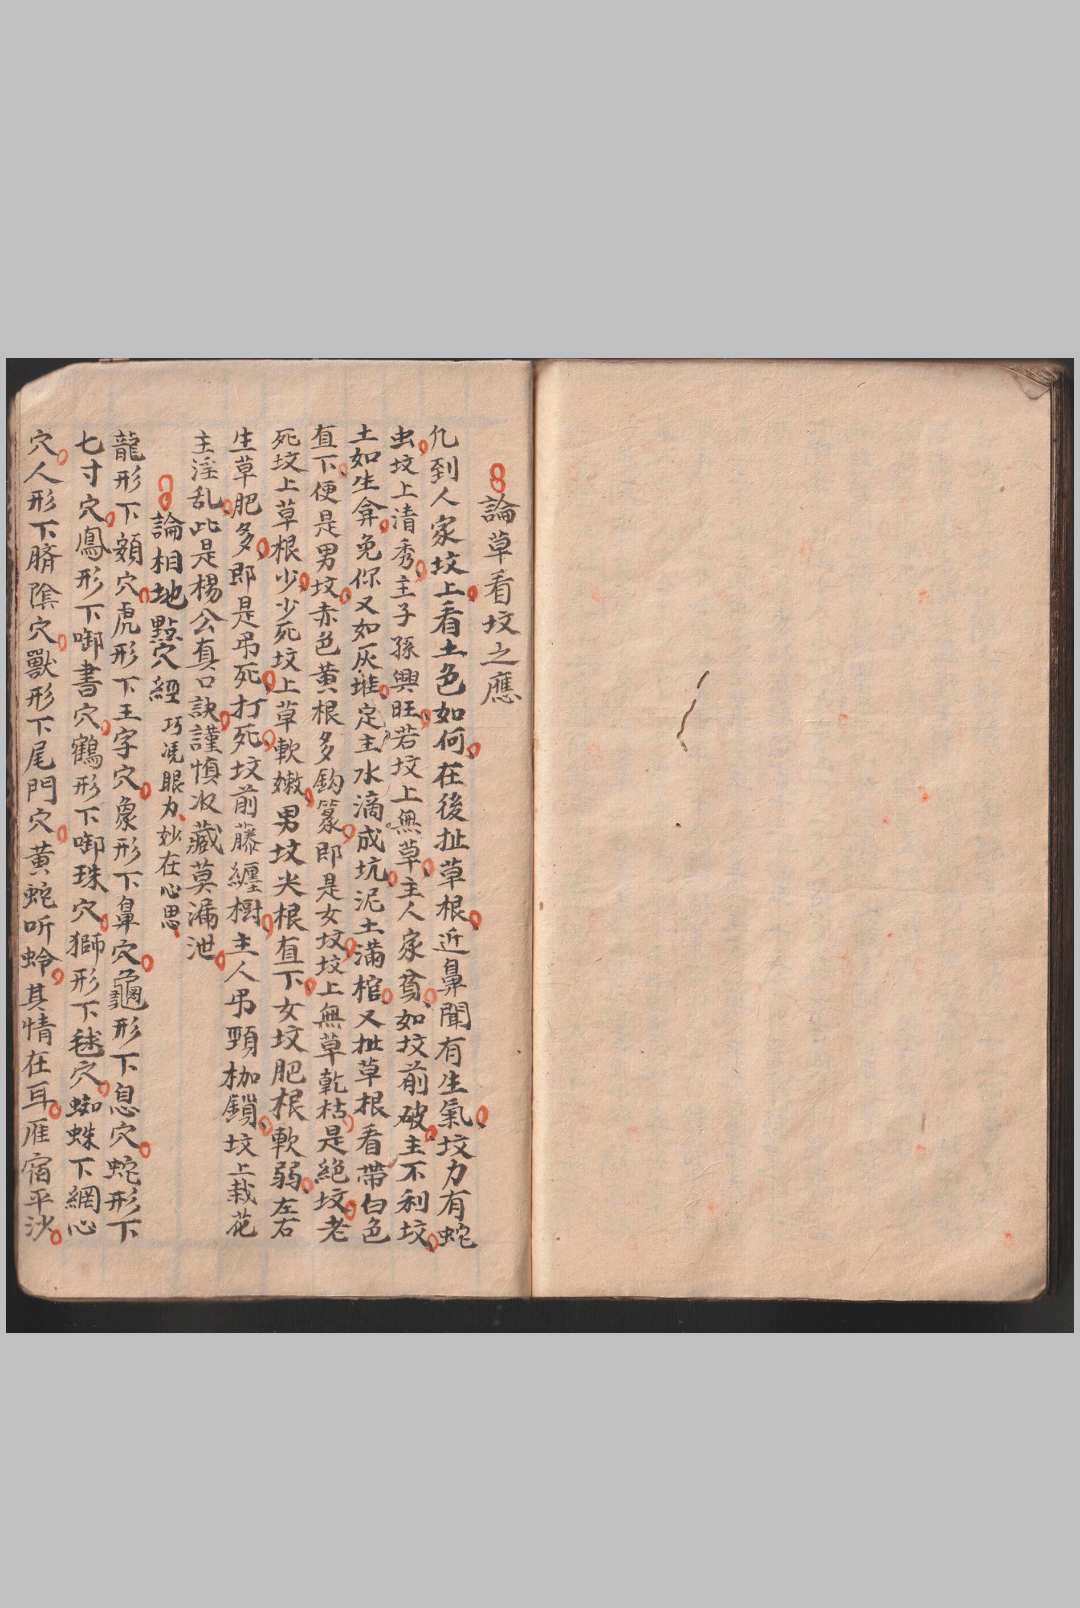 論草看坟之應
凢到人家坟上看土色如何在後扯草根近鼻聞有生氣坟力有蛇
虫坟上清秀主子孫興旺若坟上無草主人家貧如坟前破主不利坟
土如生弇兔你又如灰堆定主水滴成坑泥土滿棺又扯草根看帶白色
直下便是男坟赤色黄根多鈎篆即是女坟坟上無草乾枯是絕坟老
死坟上草根少少死坟上草軟嫩男坟尖根直下女坟肥根軟弱左右
生草肥多即是吊死打死坟前藤纏樹主人吊頸枷鎖坟上栽花
主淫乱此是楊公真口訣謹慎収藏莫漏泄
論相地點穴經 巧凴眼力妙在心思
龍形下頞穴虎形下王字穴象形下鼻穴龜形下息穴蛇形下
七寸穴鳳形下啣書穴鶴形下啣珠穴獅形下毬穴蜘蛛下網心
穴人形下臍陰穴獸形下尾門穴黄蛇听蛉其情在耳雁宿平沙